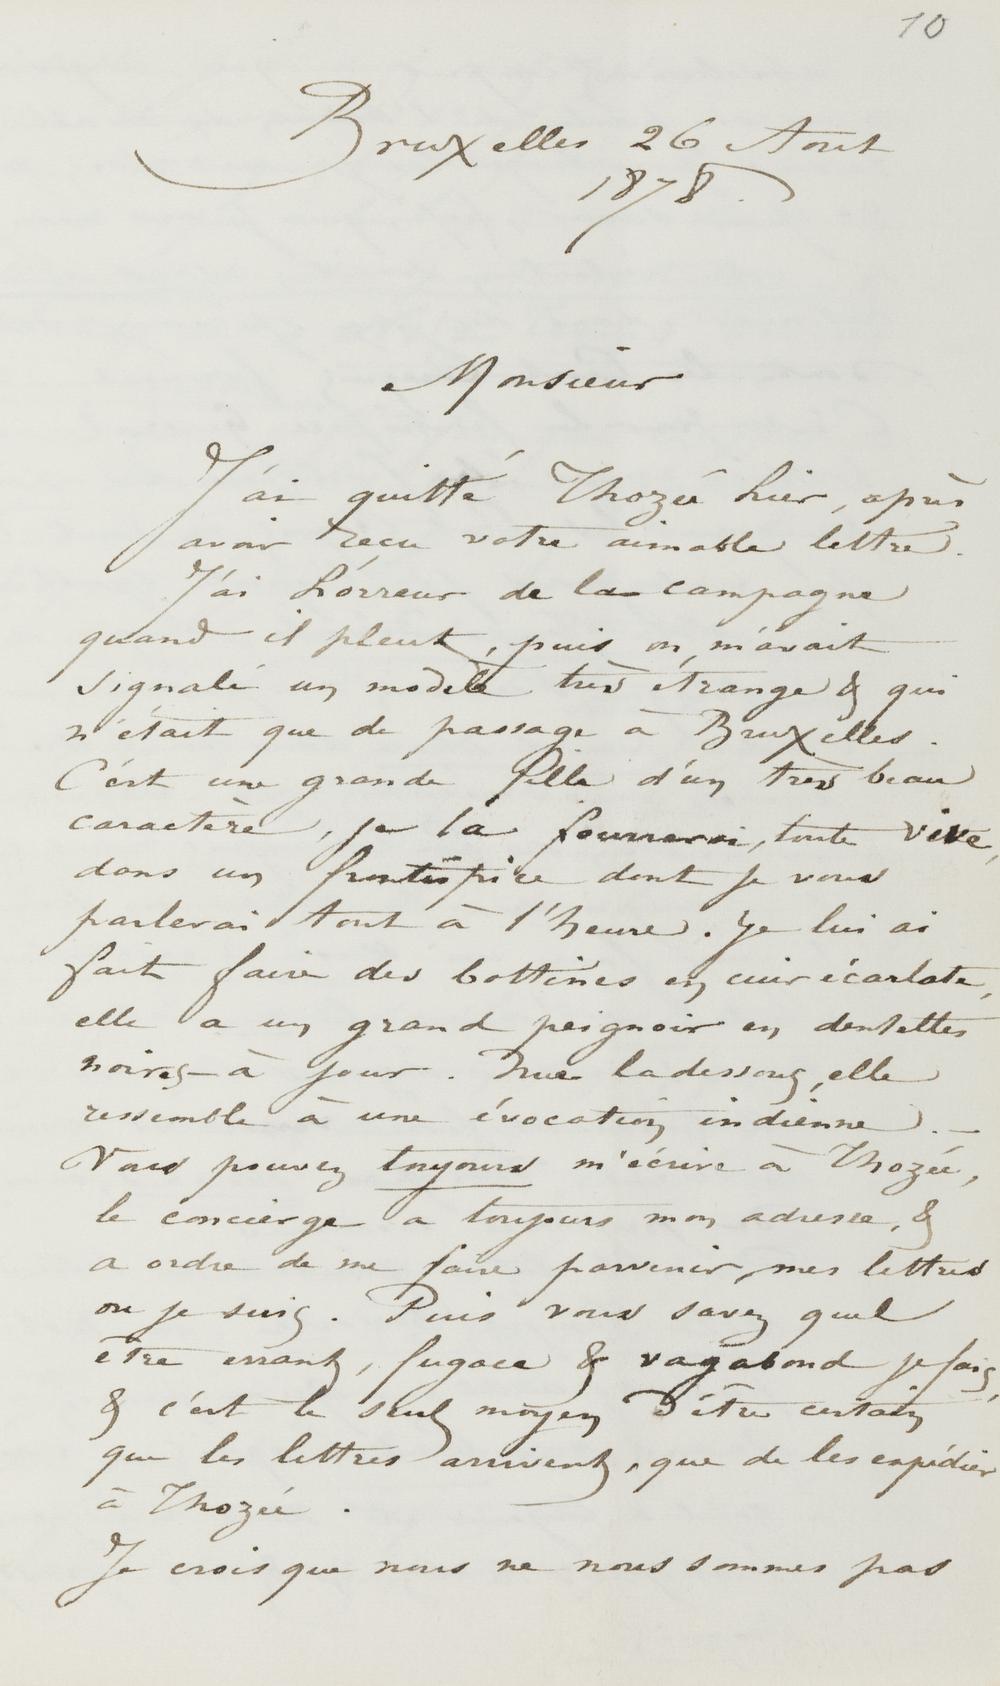 10
Bruxelles 26 Aout
1878.
Monsieur
J'ai quitté Thozée hier, après
avoir reçu votre aimable lettre.
J'ai l'horreur de la campagne
quand il pleut, puis on m'avait
signalé un modèle très étrange & qui
n'était que de passage à Bruxelles.
C'est une grande fille d'un très beau
caractère, je la fourrerai, toute vive,
dans un frontispice dont je vous
parlerai tout à l'heure. Je lui ai
fait faire des bottines en cuir écarlate,
elle a un grand peignoir en dentelles
noires à jour. Nue ladessous, elle
ressemble à une évocation indienne. _
Vous pouvez toujours m'écrire à Thozée,
le concierge a toujours mon adresse, &
a ordre de me faire parvenir, mes lettres
ou je suis. Puis vous savez quel
être errant, fugace & vagabond je fais,
& c'est le seul moyen d'être certain
que les lettres arrivent, que de les expédier
à Thozée.
Je crois que nous ne nous sommes pas